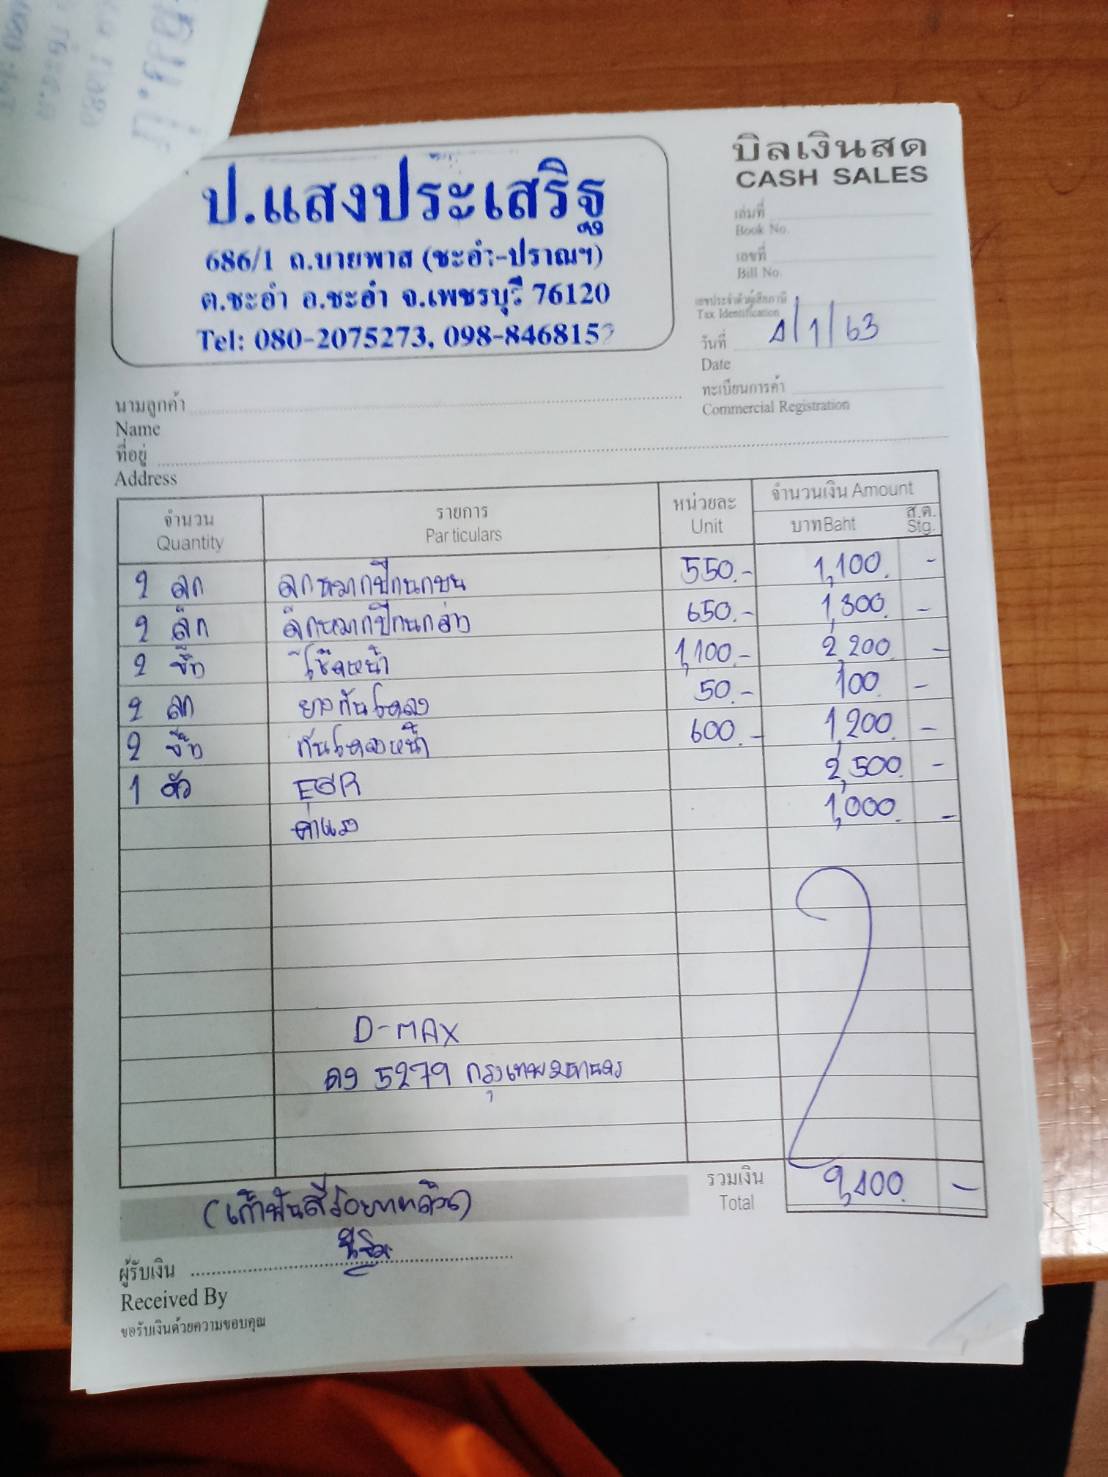 ป.แสงประเสริฐ
686/1 ถ.บายพาส (ชะอำ-ปราณฯ)
ต.ชะอำ อ.ชะอำ จ.เพชรบุรี 76120
Tel: 080-2075273, 098-8468152
บิลเงินสด
CASH SALES
เล่มที่
Book No.
เลขที่
Bill No.
เลขประจำตัวผู้เสียภาษี
Tax Identification
วันที่ 4/1/63
Date
ทะเบียนการค้า
Commercial Registration
นามลูกค้า
Name
ที่อยู่
Address
จำนวน รายการ หน่วยละ จำนวนเงิน Amount
Quantity Particulars Unit บาท Baht ส.ต. Stg.
2 ลูก ลูกหมากปีกนกบน 550.- 1,100. -
2 ลูก ลูกหมากปีกนกล่าง 650.- 1,300. -
2 ชิ้น โช๊คหน้า 1,100.- 2,200. -
2 ลูก ยางกันโคลง 50.- 100 -
2 ชิ้น กันโคลงหน้า 600.- 1,200. -
1 ตัว EGR 2,500. -
ค่าแรง 1,000. -
D-MAX
5279 กรุงเทพมหานคร
รวมเงิน
Total 9,400. -
(เก้าพันสี่ร้อยบาทถ้วน)
ผู้รับเงิน
Received By
ขอรับเงินด้วยความขอบคุณ